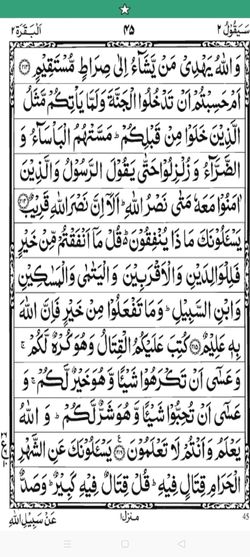 سَيَقُوْلُ ٢ ٤٥ اَلْبَقَرَة ٢
وَ اللّٰهُ يَهْدِيْ مَنْ يَّشَآءُ اِلٰى صِرَاطٍ مُّسْتَقِيْمٍ ﴿۲۱۳﴾
اَمْ حَسِبْتُمْ اَنْ تَدْخُلُوا الْجَنَّةَ وَ لَمَّا يَاْتِكُمْ مَّثَلُ
الَّذِيْنَ خَلَوْا مِنْ قَبْلِكُمْ ؕ مَسَّتْهُمُ الْبَاْسَآءُ وَ
الضَّرَّآءُ وَ زُلْزِلُوْا حَتّٰى يَقُوْلَ الرَّسُوْلُ وَ الَّذِيْنَ
اٰمَنُوْا مَعَهٗ مَتٰى نَصْرُ اللّٰهِ ؕ اَلَاۤ اِنَّ نَصْرَ اللّٰهِ قَرِيْبٌ ﴿۲۱۴﴾
يَسْـَٔلُوْنَكَ مَا ذَا يُنْفِقُوْنَ ؕ قُلْ مَاۤ اَنْفَقْتُمْ مِّنْ خَيْرٍ
فَلِلْوَالِدَيْنِ وَ الْاَقْرَبِيْنَ وَ الْيَتٰمٰى وَ الْمَسٰكِيْنِ
وَ ابْنِ السَّبِيْلِ ؕ وَ مَا تَفْعَلُوْا مِنْ خَيْرٍ فَاِنَّ اللّٰهَ
بِهٖ عَلِيْمٌ ﴿۲۱۵﴾ كُتِبَ عَلَيْكُمُ الْقِتَالُ وَ هُوَ كُرْهٌ لَّكُمْ ۚ
وَ عَسٰۤى اَنْ تَكْرَهُوْا شَيْـًٔا وَّ هُوَ خَيْرٌ لَّكُمْ ۚ وَ
عَسٰۤى اَنْ تُحِبُّوْا شَيْـًٔا وَّ هُوَ شَرٌّ لَّكُمْ ؕ وَ اللّٰهُ
يَعْلَمُ وَ اَنْتُمْ لَا تَعْلَمُوْنَ ﴿۲۱۶﴾ يَسْـَٔلُوْنَكَ عَنِ الشَّهْرِ
الْحَرَامِ قِتَالٍ فِيْهِ ؕ قُلْ قِتَالٌ فِيْهِ كَبِيْرٌ ؕ وَ صَدٌّ
45 منزل ١ عَنْ سَبِيْلِ اللّٰهِ